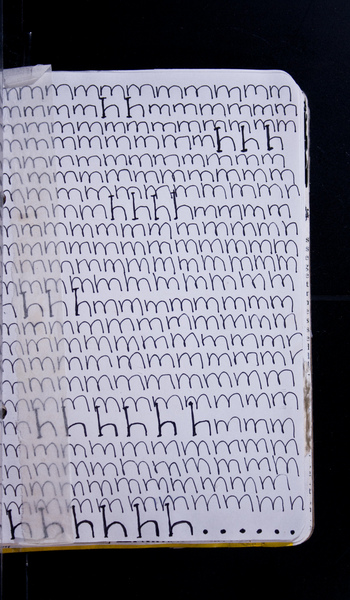 mmmmmmmmmmmm
mmmmhhmmmmmm
mmmmmmmmmmmm
mmmmmmmmmhhh
mmmmmmmmmmmm
mmmmmmmmmmmm
mmmmmmmmmmmm
mmmmhhhhmmmmm
mmmmmmmmmmmm
mmmmmmmmmmmm
mmmmmmmmmmmm
mmmmmmmmmmmm
hhhmmmmmmmm
mmmmmmmmmmmm
mmmmmmmmmmmm
mmmmmmmmmmmm
mmmmmmmmmmmm
mmmmmmmmmmmm
mhhhhhhmmm
mmmmmmmmmmmm
mmmmmmmmmmmm
mmmmmmmmmmmm
mmmmmmmmmmmm
hhhhhh......